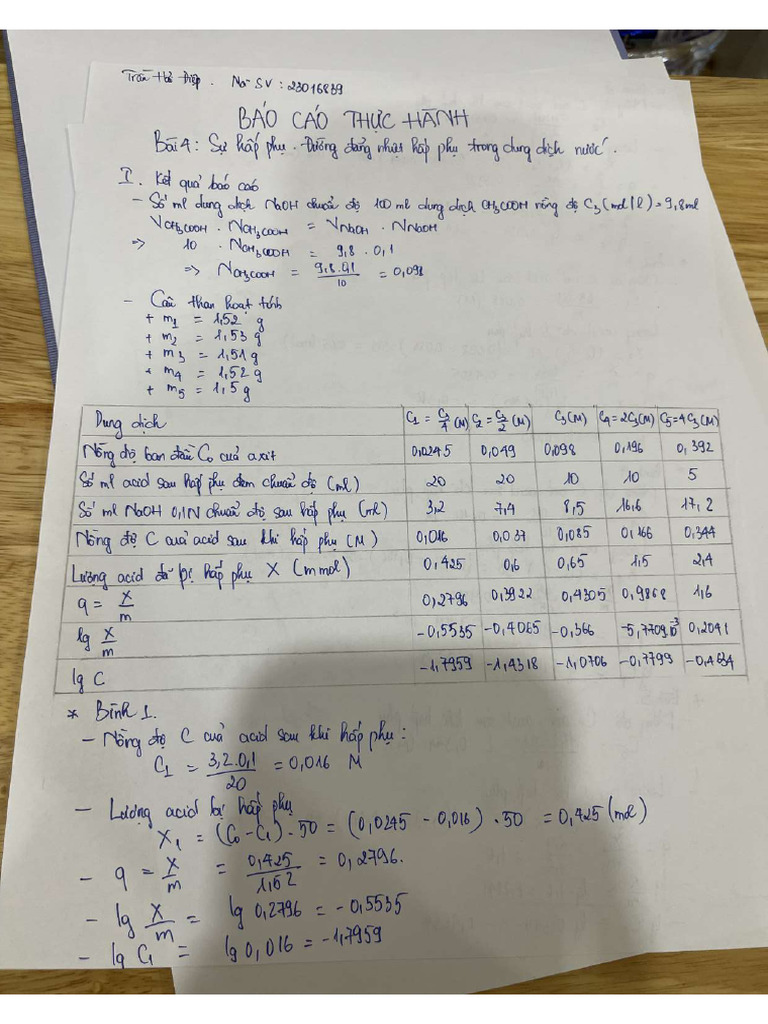 Trần Thị Điệp. Mã SV: 23016839
BÁO CÁO THỰC HÀNH
Bài 4: Sự hấp phụ. Đường đẳng nhiệt hấp phụ trong dung dịch nước.
I. Kết quả báo cáo
- Số ml dung dịch NaOH chuẩn độ 100 ml dung dịch CH₃COOH nồng độ C₃ (mol/l) = 9,8ml
V_CH₃COOH . N_CH₃COOH = V_NaOH . N_NaOH
=> 10 . N_CH₃COOH = 9,8 . 0,1
=> N_CH₃COOH = 9,8.0,1/10 = 0,098
- Cân than hoạt tính
+ m₁ = 1,52 g
+ m₂ = 1,53 g
+ m₃ = 1,51 g
+ m₄ = 1,52 g
+ m₅ = 1,5 g
Dung dịch C₁ = C₃/4 (M) C₂ = C₃/2 (M) C₃(M) C₄=2C₃(M) C₅=4C₃(M)
Nồng độ ban đầu C₀ cuả axit 0,0245 0,049 0,098 0,196 0,392
Số ml acid sau hấp phụ đem chuẩn độ (ml) 20 20 10 10 5
Số ml NaOH 0,1N chuẩn độ sau hấp phụ (ml) 3,2 7,4 8,5 16,6 17,2
Nồng độ C cuả acid sau khi hấp phụ (M) 0,016 0,037 0,085 0,166 0,344
Lượng acid đã bị hấp phụ X (mmol) 0,425 0,6 0,65 1,5 2,4
q = X/m 0,2796 0,3922 0,4305 0,9868 1,6
lg X/m -0,5535 -0,4065 -0,366 -5,7709.10⁻³ 0,2041
lg C -1,7959 -1,4318 -1,0706 -0,7799 -0,4634
* Bình 1.
- Nồng độ C cuả acid sau khi hấp phụ:
C₁ = 3,2.0,1/20 = 0,016 M
- Lượng acid bị hấp phụ
X₁ = (C₀ - C₁) . 50 = (0,0245 - 0,016) . 50 = 0,425 (mol)
- q = X/m = 0,425/1,52 = 0,2796.
- lg X/m = lg 0,2796 = -0,5535
- lg C₁ = lg 0,016 = -1,7959